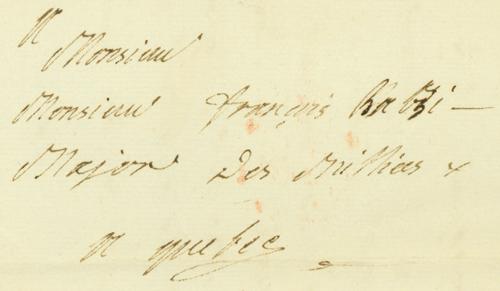 A
Monsieur
Monsieur françois Rabÿ —
Major Des Millices &
A quebec